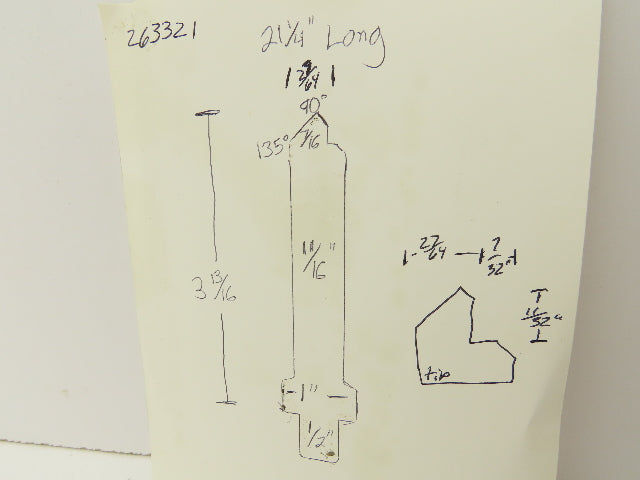 263321
21 1/4" Long
90°
135°
7/16
11/16"
3 13/16
1"
1/2"
27/64
7/32"
tip